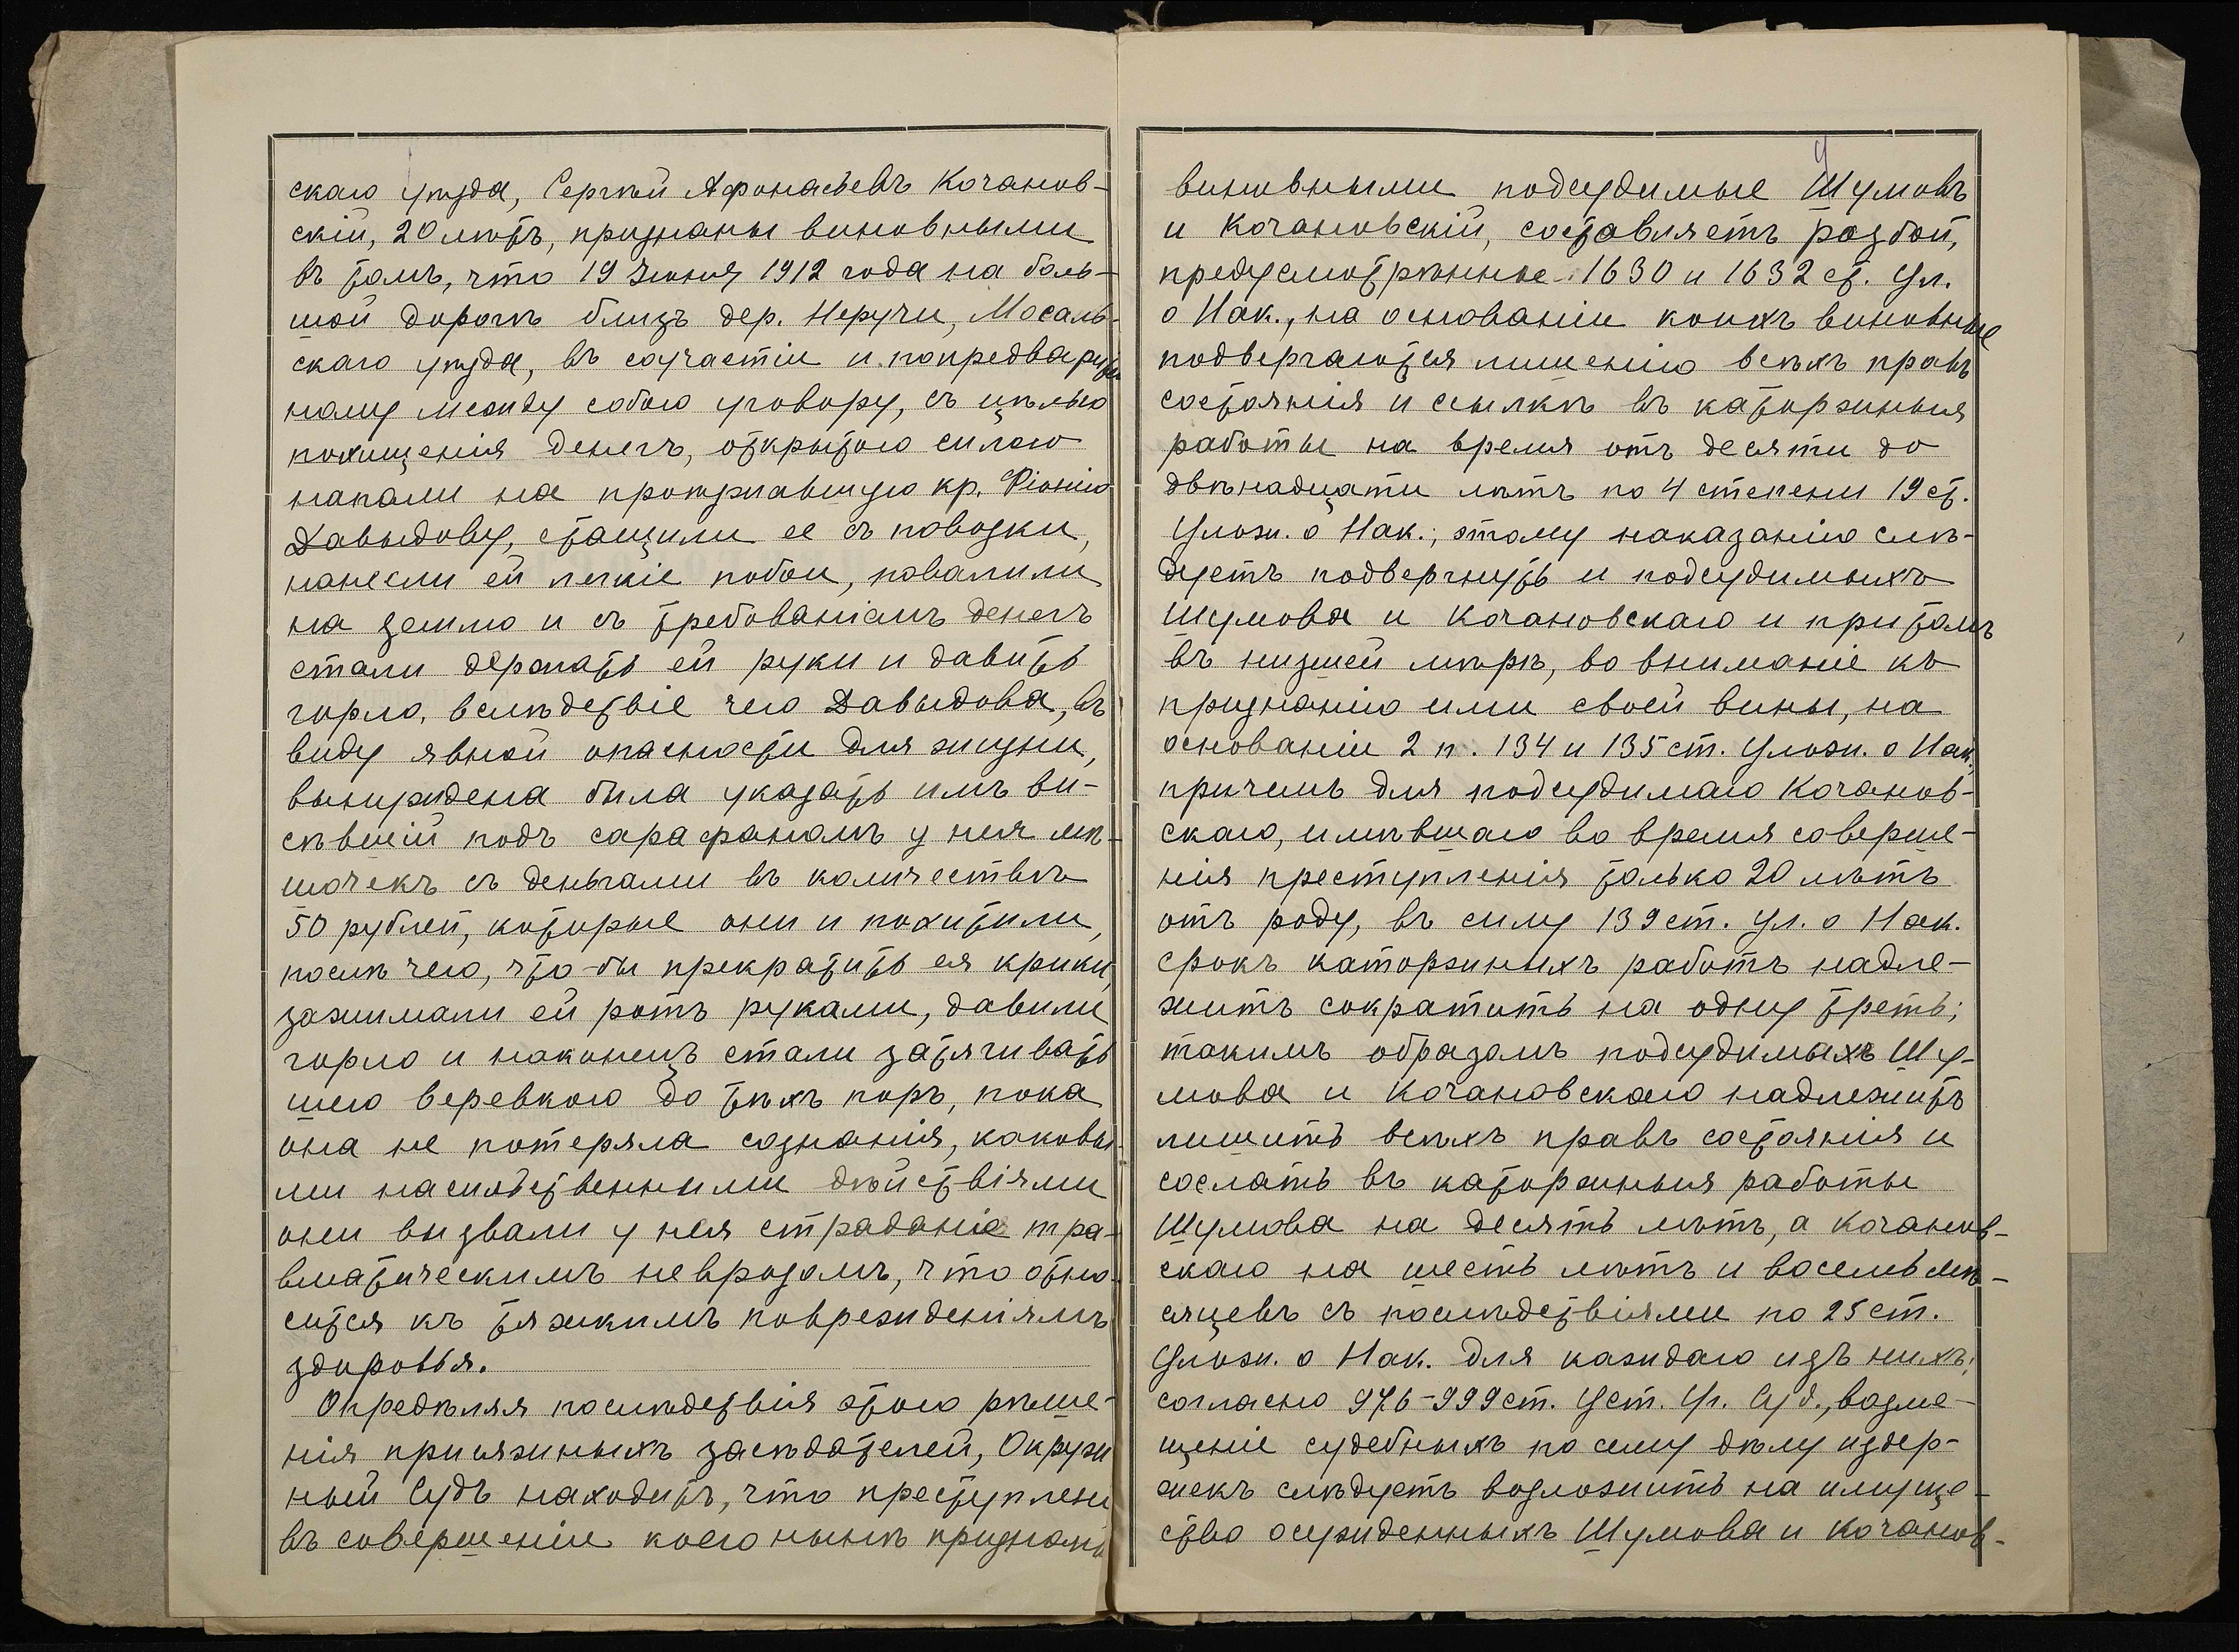 скаго уѣзда, Сергѣй Афонасьевъ Кочанов-
скій, 20 лѣтъ, признаны виновными
въ томъ, что 19 Іюня 1912 года на боль-
шой дорогѣ близъ дер. Неручи, Мосаль-
скаго уѣзда, въ соучастіи и по предвари
ному между собою уговору, съ цѣлью
похищенія денегъ, открытою силою
напали на проѣзжавшую кр.
Давыдову, стащили ее съ повозки,
нанесли ей легкіе побои, повалили
на землю и съ требованіемъ денегъ
стали держать ей руки и давить
горло, вслѣдствіе чего Давыдова, въ
виду явной опасности для жизни,
вынуждена была указать имъ ви-
сѣвшій подъ сарафаномъ у нея мѣ-
шочекъ съ деньгами въ количествѣ
50 рублей, которые они и похитили,
послѣ чего, что-бы прекратить ея крики,
зажимали ей ротъ руками, давили
горло и наконецъ стали затягивать
шею веревкою до тѣхъ поръ, пока
она не потеряла сознанія, каковы-
ми насильственными дѣйствіями
они вызвали у нея страданіе тра-
вматическимъ неврозомъ, что отно-
сится къ тяжкимъ поврежденіямъ
здоровья.
Опредѣляя послѣдствія этого рѣше-
нія присяжныхъ засѣдателей, Окруж
ный Судъ находитъ, что преступлені
въ совершеніи коего нынѣ признаны
виновными подсудимые Шумовъ
и Кочановскій, составляетъ разбой,
предусмотрѣнные 1630 и 1632 ст. Ул.
о Нак., на основаніи коихъ виновные
подвергаются лишенію всѣхъ правъ
состоянія и ссылкѣ въ каторжныя
работы на время отъ десяти до
двѣнадцати лѣтъ по 4 степени 19 ст.
Улож. о Нак.; этому наказанію слѣ-
дуетъ подвергнуть и подсудимыхъ
Шумова и Кочановскаго и притомъ
въ низшей мѣрѣ, во вниманіе къ
признанію ими своей вины, на
основаніи 2 п. 134 и 135 ст. Улож. о Нак.,
причемъ для подсудимаго Кочанов-
скаго, имѣвшаго во время соверше-
нія преступленія только 20 лѣтъ
отъ роду, въ силу 139 ст. Ул. о Нак.
срокъ каторжныхъ работъ надле-
житъ сократить на одну треть;
такимъ образомъ подсудимыхъ Шу-
мова и Кочановскаго надлежитъ
лишить всѣхъ правъ состоянія и
сослать въ каторжныя работы
Шумова на десять лѣтъ, а Кочанов-
скаго на шесть лѣтъ и восемь мѣ-
сяцевъ съ послѣдствіями по 25 ст.
Улож. о Нак. для каждаго изъ нихъ;
согласно 976-999 ст. Уст. Уг. Суд., возме-
щеніе судебныхъ по сему дѣлу издер-
жекъ слѣдуетъ возложить на имуще-
ство осужденныхъ Шумова и Кочанов-